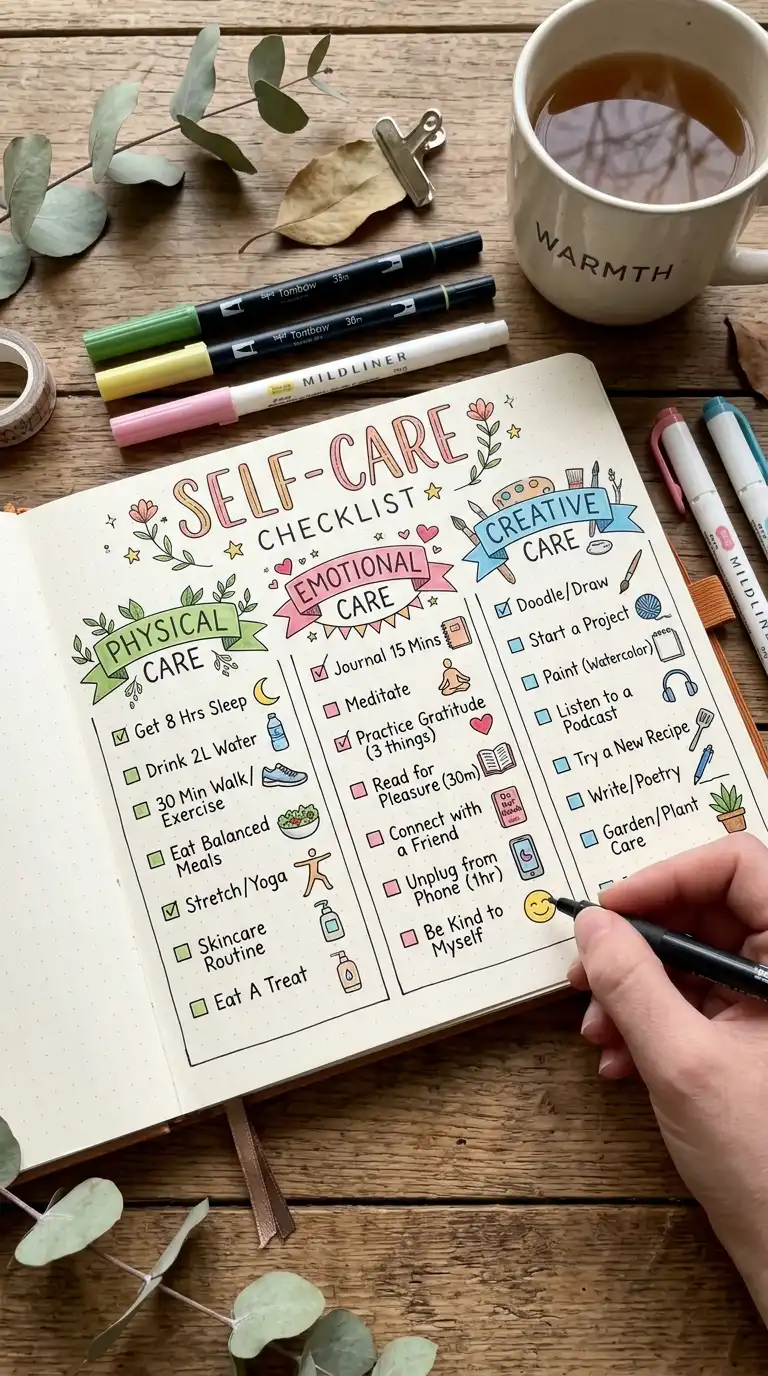 WARMTH
Tombow
Tombow
MILDLINER
SELF-CARE
CHECKLIST
PHYSICAL
CARE
Get 8 Hrs Sleep
Drink 2L Water
30 Min Walk/
Exercise
Eat Balanced
Meals
Stretch/Yoga
Skincare
Routine
Eat A Treat
EMOTIONAL
CARE
Journal 15 Mins
Meditate
Practice Gratitude
(3 things)
Read for
Pleasure (30m)
Connect with
a Friend
Unplug from
Phone (1hr)
Be Kind to
Myself
CREATIVE
CARE
Doodle/Draw
Start a Project
Paint (Watercolor)
Listen to a
Podcast
Try a New Recipe
Write/Poetry
Garden/Plant
Care
MILDLINER